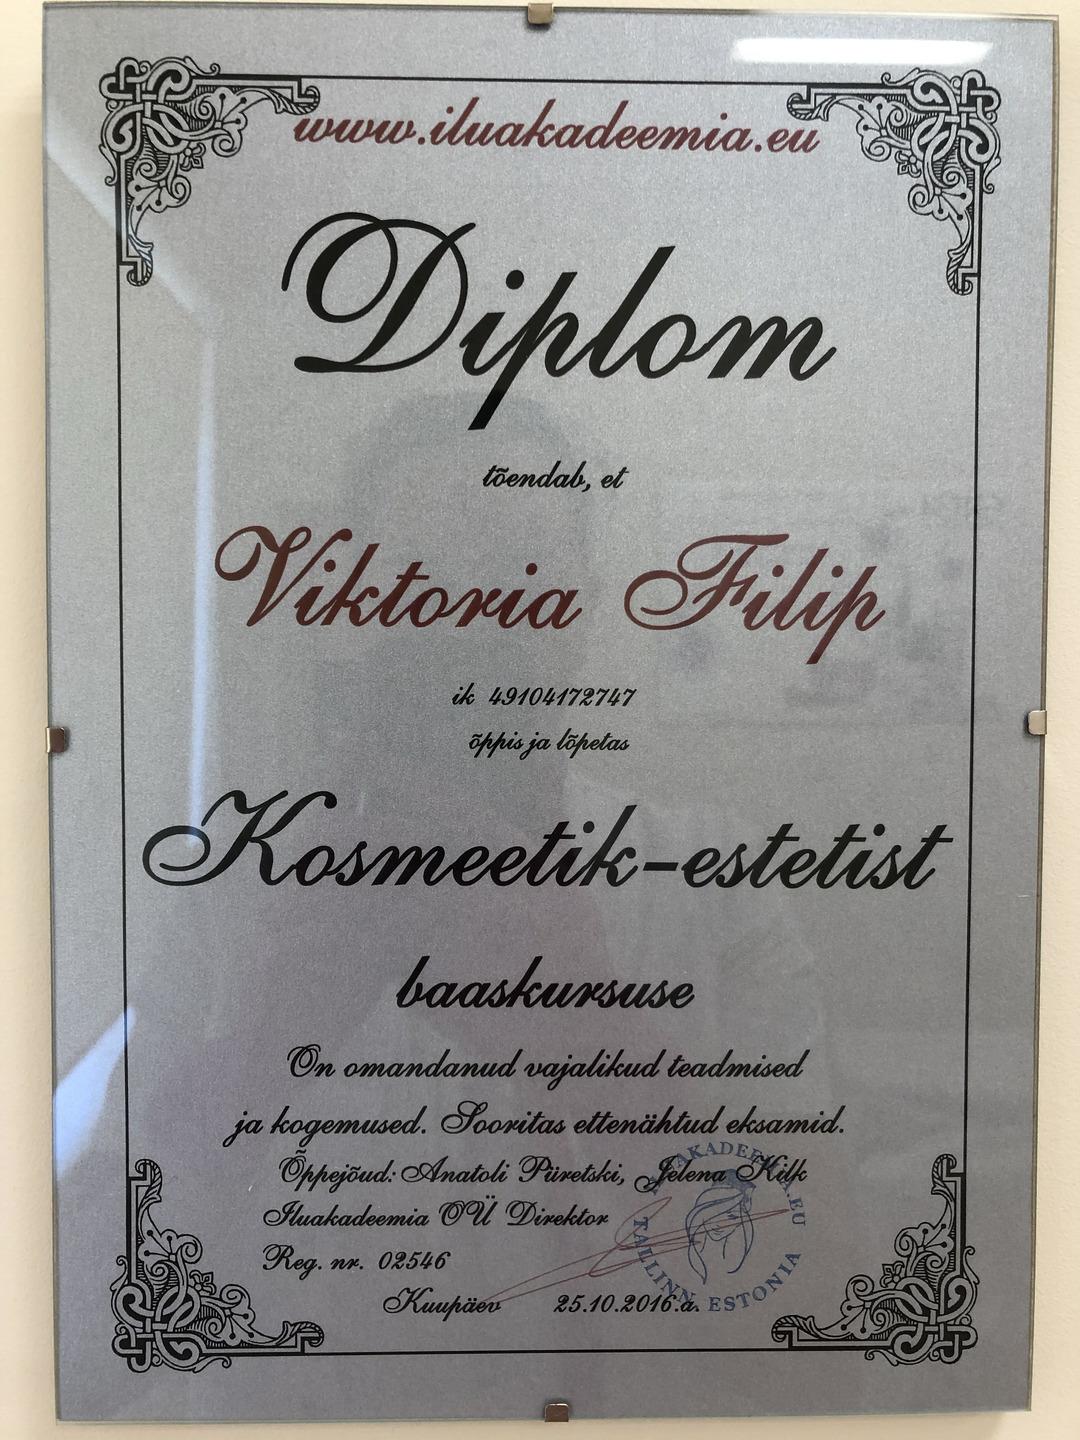 www.iluakadeemia.eu
Diplom
tõendab, et
Viktoria Filip
ik 49104172747
õppis ja lõpetas
Kosmeetik-estetist
baaskursuse
On omandanud vajalikud teadmised
ja kogemused. Sooritas ettenähtud eksamid.
Õppejõud: Anatoli Püretski, Jelena Hilk
Iluakadeemia OÜ Direktor
Reg. nr. 02546
Kuupäev 25.10.2016.a.
TALLINN ESTONIA